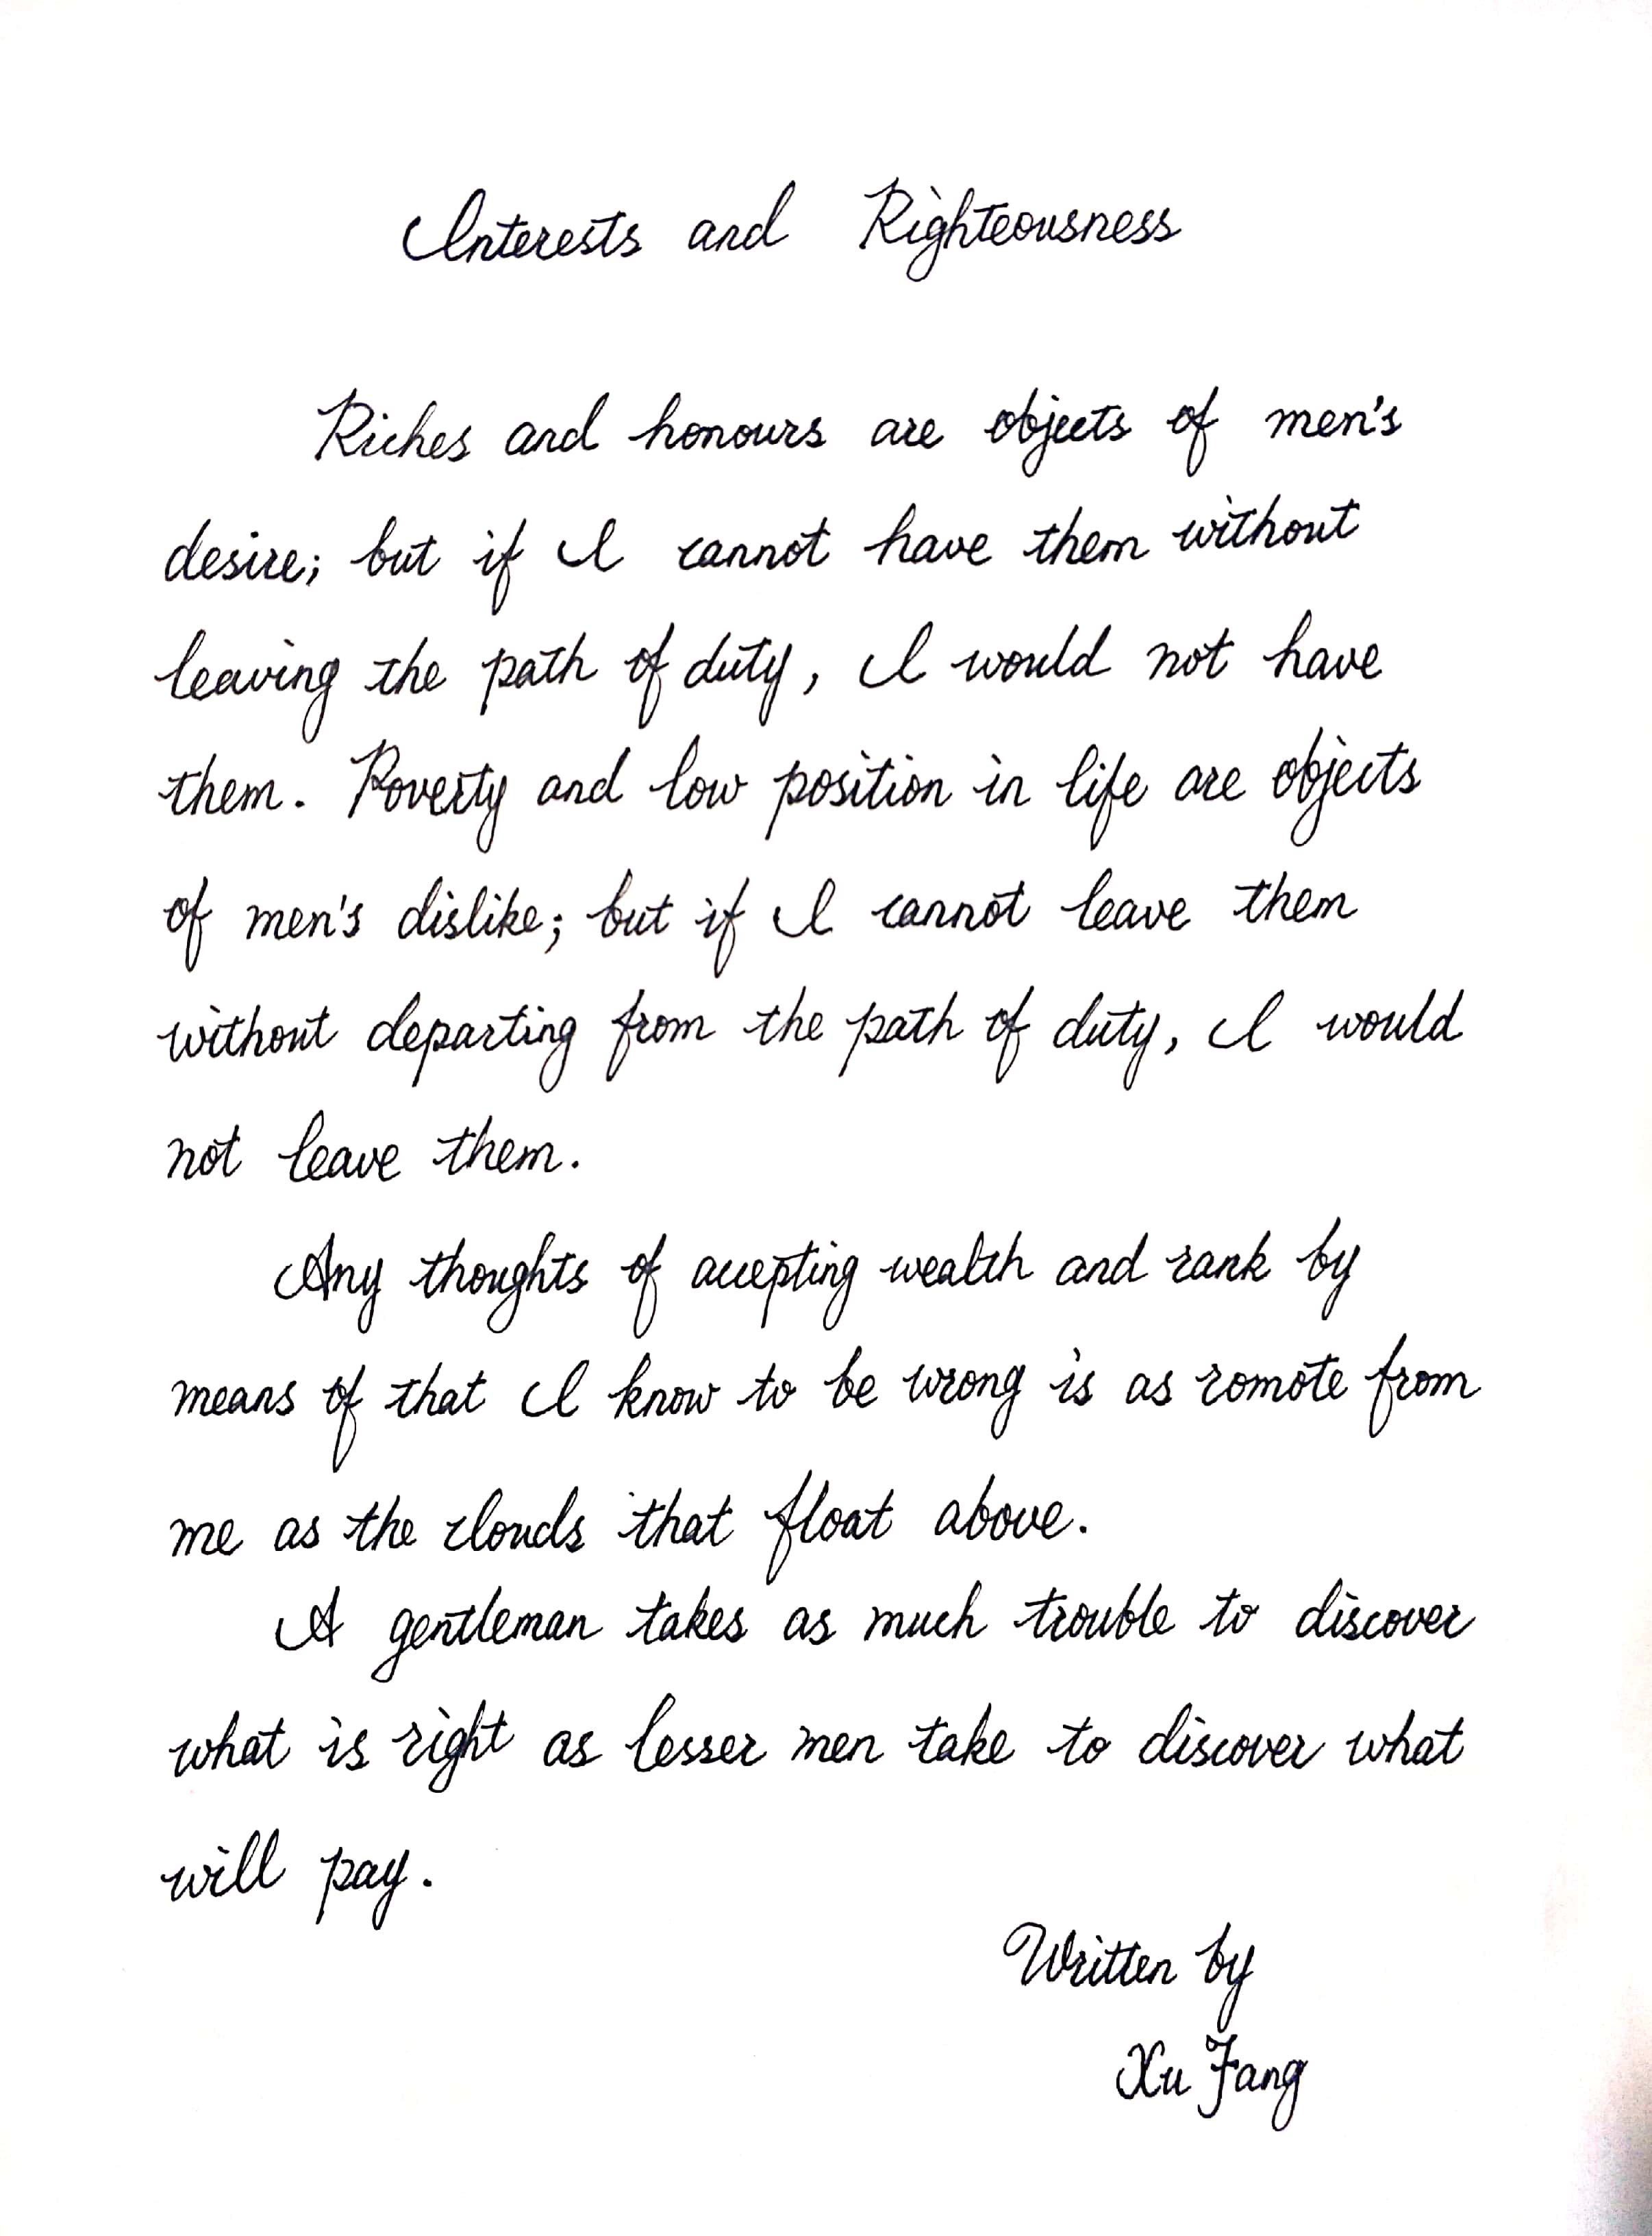 Interests and Righteousness
Riches and honours are objects of men's
desire; but if I cannot have them without
leaving the path of duty, I would not have
them. Poverty and low position in life are objects
of men's dislike; but if I cannot leave them
without departing from the path of duty, I would
not leave them.
Any thoughts of accepting wealth and rank by
means of that I know to be wrong is as romote from
me as the clouds that float above.
A gentleman takes as much trouble to discover
what is right as lesser men take to discover what
will pay.
Written by
Xu Fang